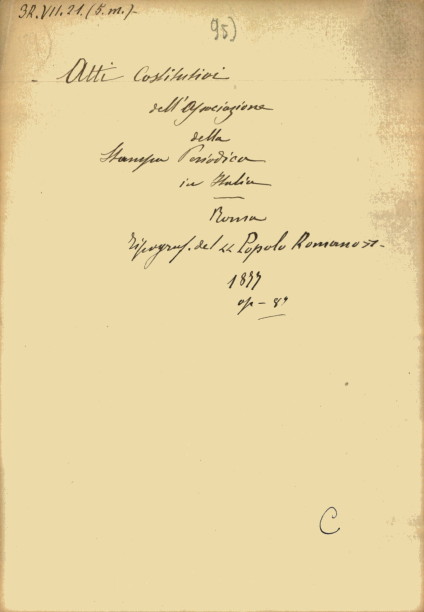 32.VII.21.(5.m.)-
95)
Atti Costitutivi
dell'Associazione
della
Stampa Periodica
in Italia
Roma
Tipograf. del << Popolo Romano >>.
1877
op - 8º
C